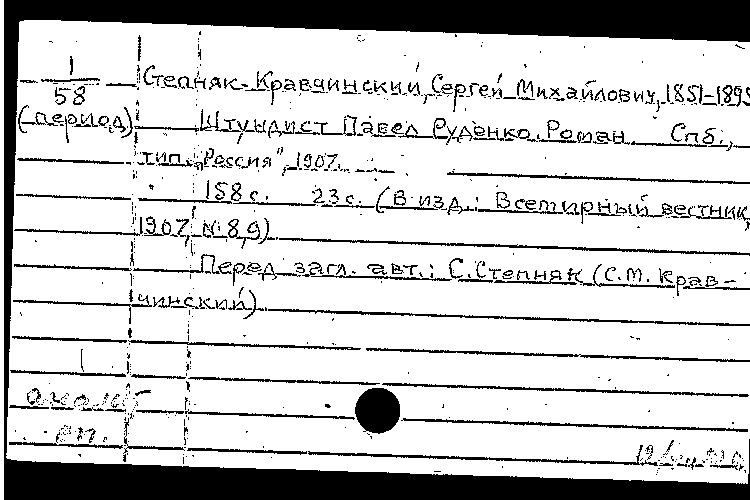 1
58
(период)
Степняк-Кравчинский, Сергей Михайлович, 1851-1895
Штундист Павел Руденко. Роман. Спб.,
тип. „Россия", 1907.
158 с. 23 с. (В изд.: Всемирный вестник,
1907, № 8,9)
Перед загл. авт.: С. Степняк (С.М. Крав-
чинский)